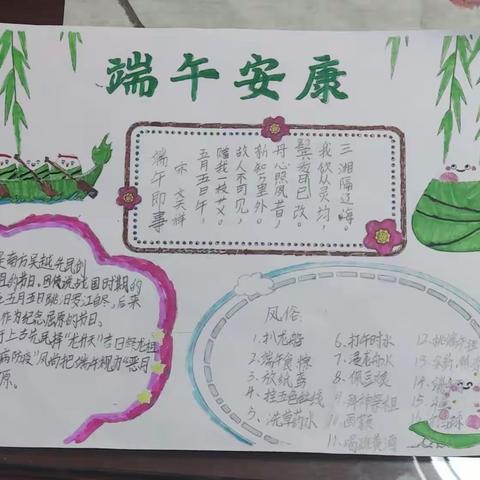 端午安康
端午即事
宋 文天祥
五月五日午,
赠我一枝艾。
故人不可见,
新知万里外。
丹心照夙昔,
鬓发日已改。
我欲从灵均,
三湘隔辽海。
南方吴越先民创
的节日,因传说战国时期的
五月五日跳汨罗江自尽,后来
作为纪念屈原的节日。
于上古先民择“龙升天”吉日祭龙祖
病防疫”风尚把端午视为“恶月
原。
风俗
1、扒龙船
2、端午食粽
3、放纸鸢
4、拴五色丝线
5、洗草药水
6、打午时水
7、浸龙舟水
8、佩豆娘
9、拜神祭祖
10、画额
11、喝雄黄酒
12、
13、
14、
15、